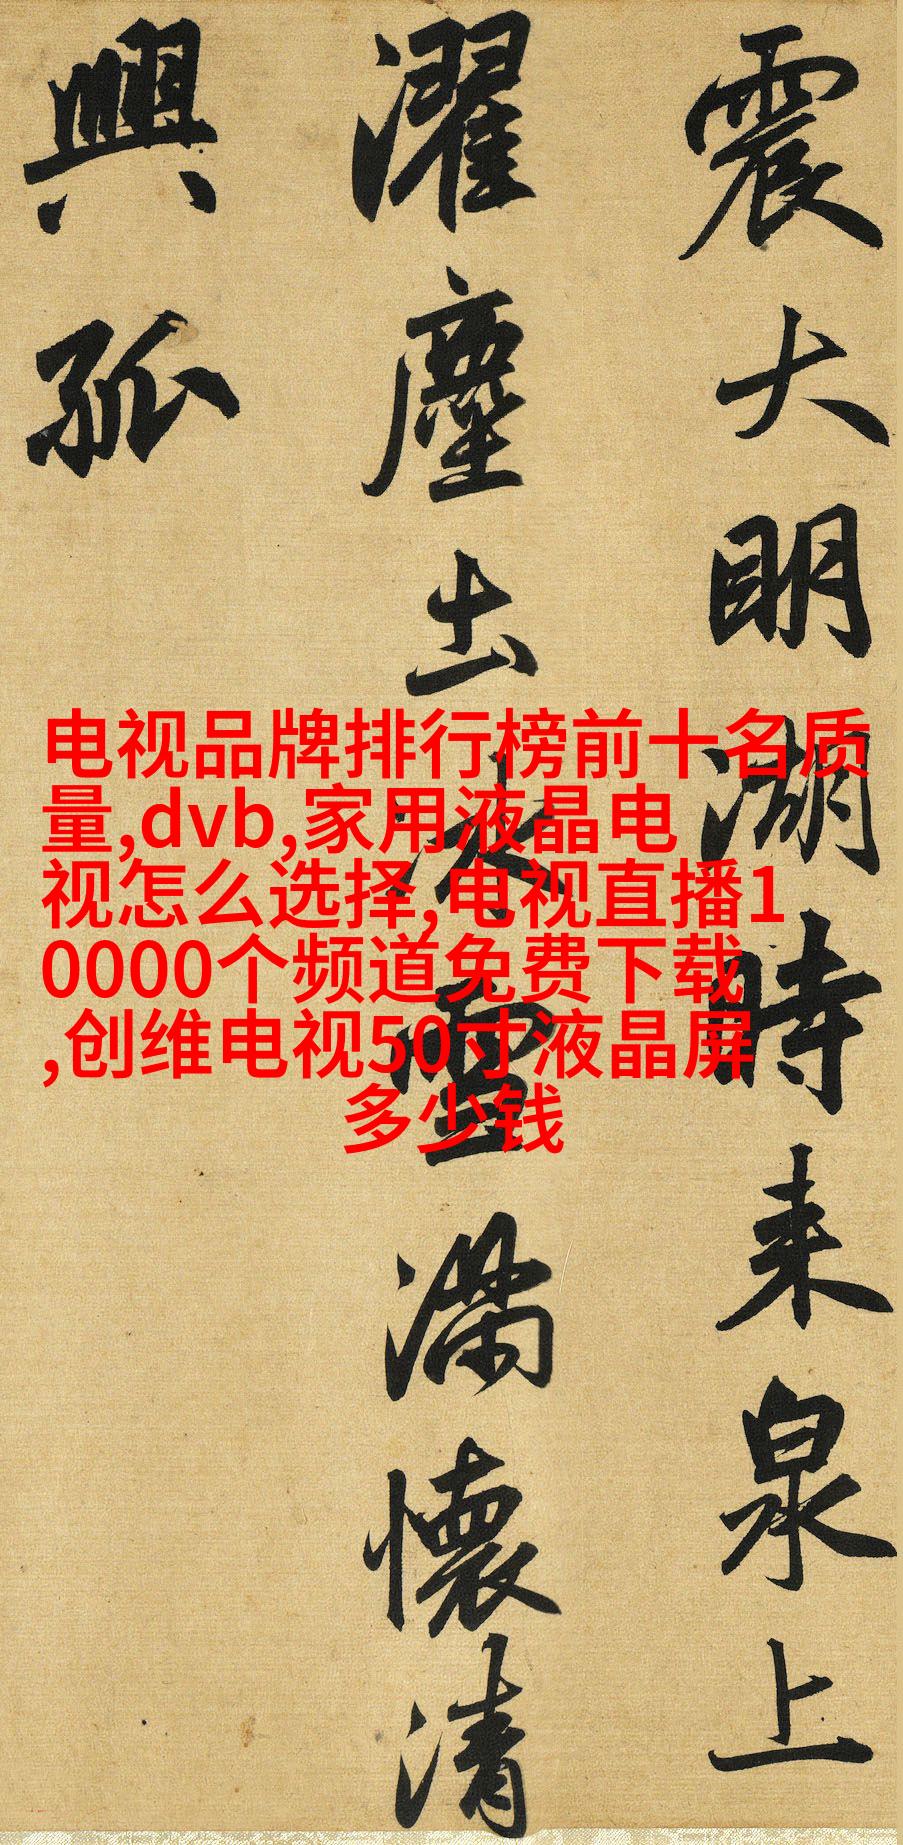 震大明湖時来泉上
濯塵出冰雪滿懷清
興孤
电视品牌排行榜前十名质
量,dvb,家用液晶电
视怎么选择,电视直播1
0000个频道免费下载
,创维电视50寸液晶屏
多少钱